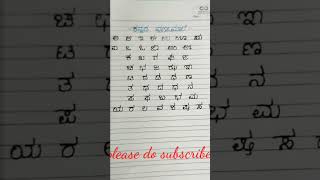 ಕನ್ನಡ ವರ್ಣಮಾಲೆ
ಅ ಆ ಇ ಈ ಉ ಊ ಋ
ಕ ಖ ಗ ಘ ಙ
ಚ ಛ ಜ ಝ ಞ
ಟ ಠ ಡ ಢ ಣ
ತ ಥ ದ ಧ ನ
ಪ ಫ ಬ ಭ ಮ
ಯ ರ ಲ ವ ಶ ಷ ಸ ಹ
please do subscribe